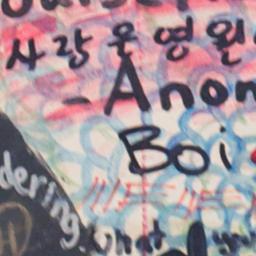 사랑은영원
- Anon
Boi
dering.
what